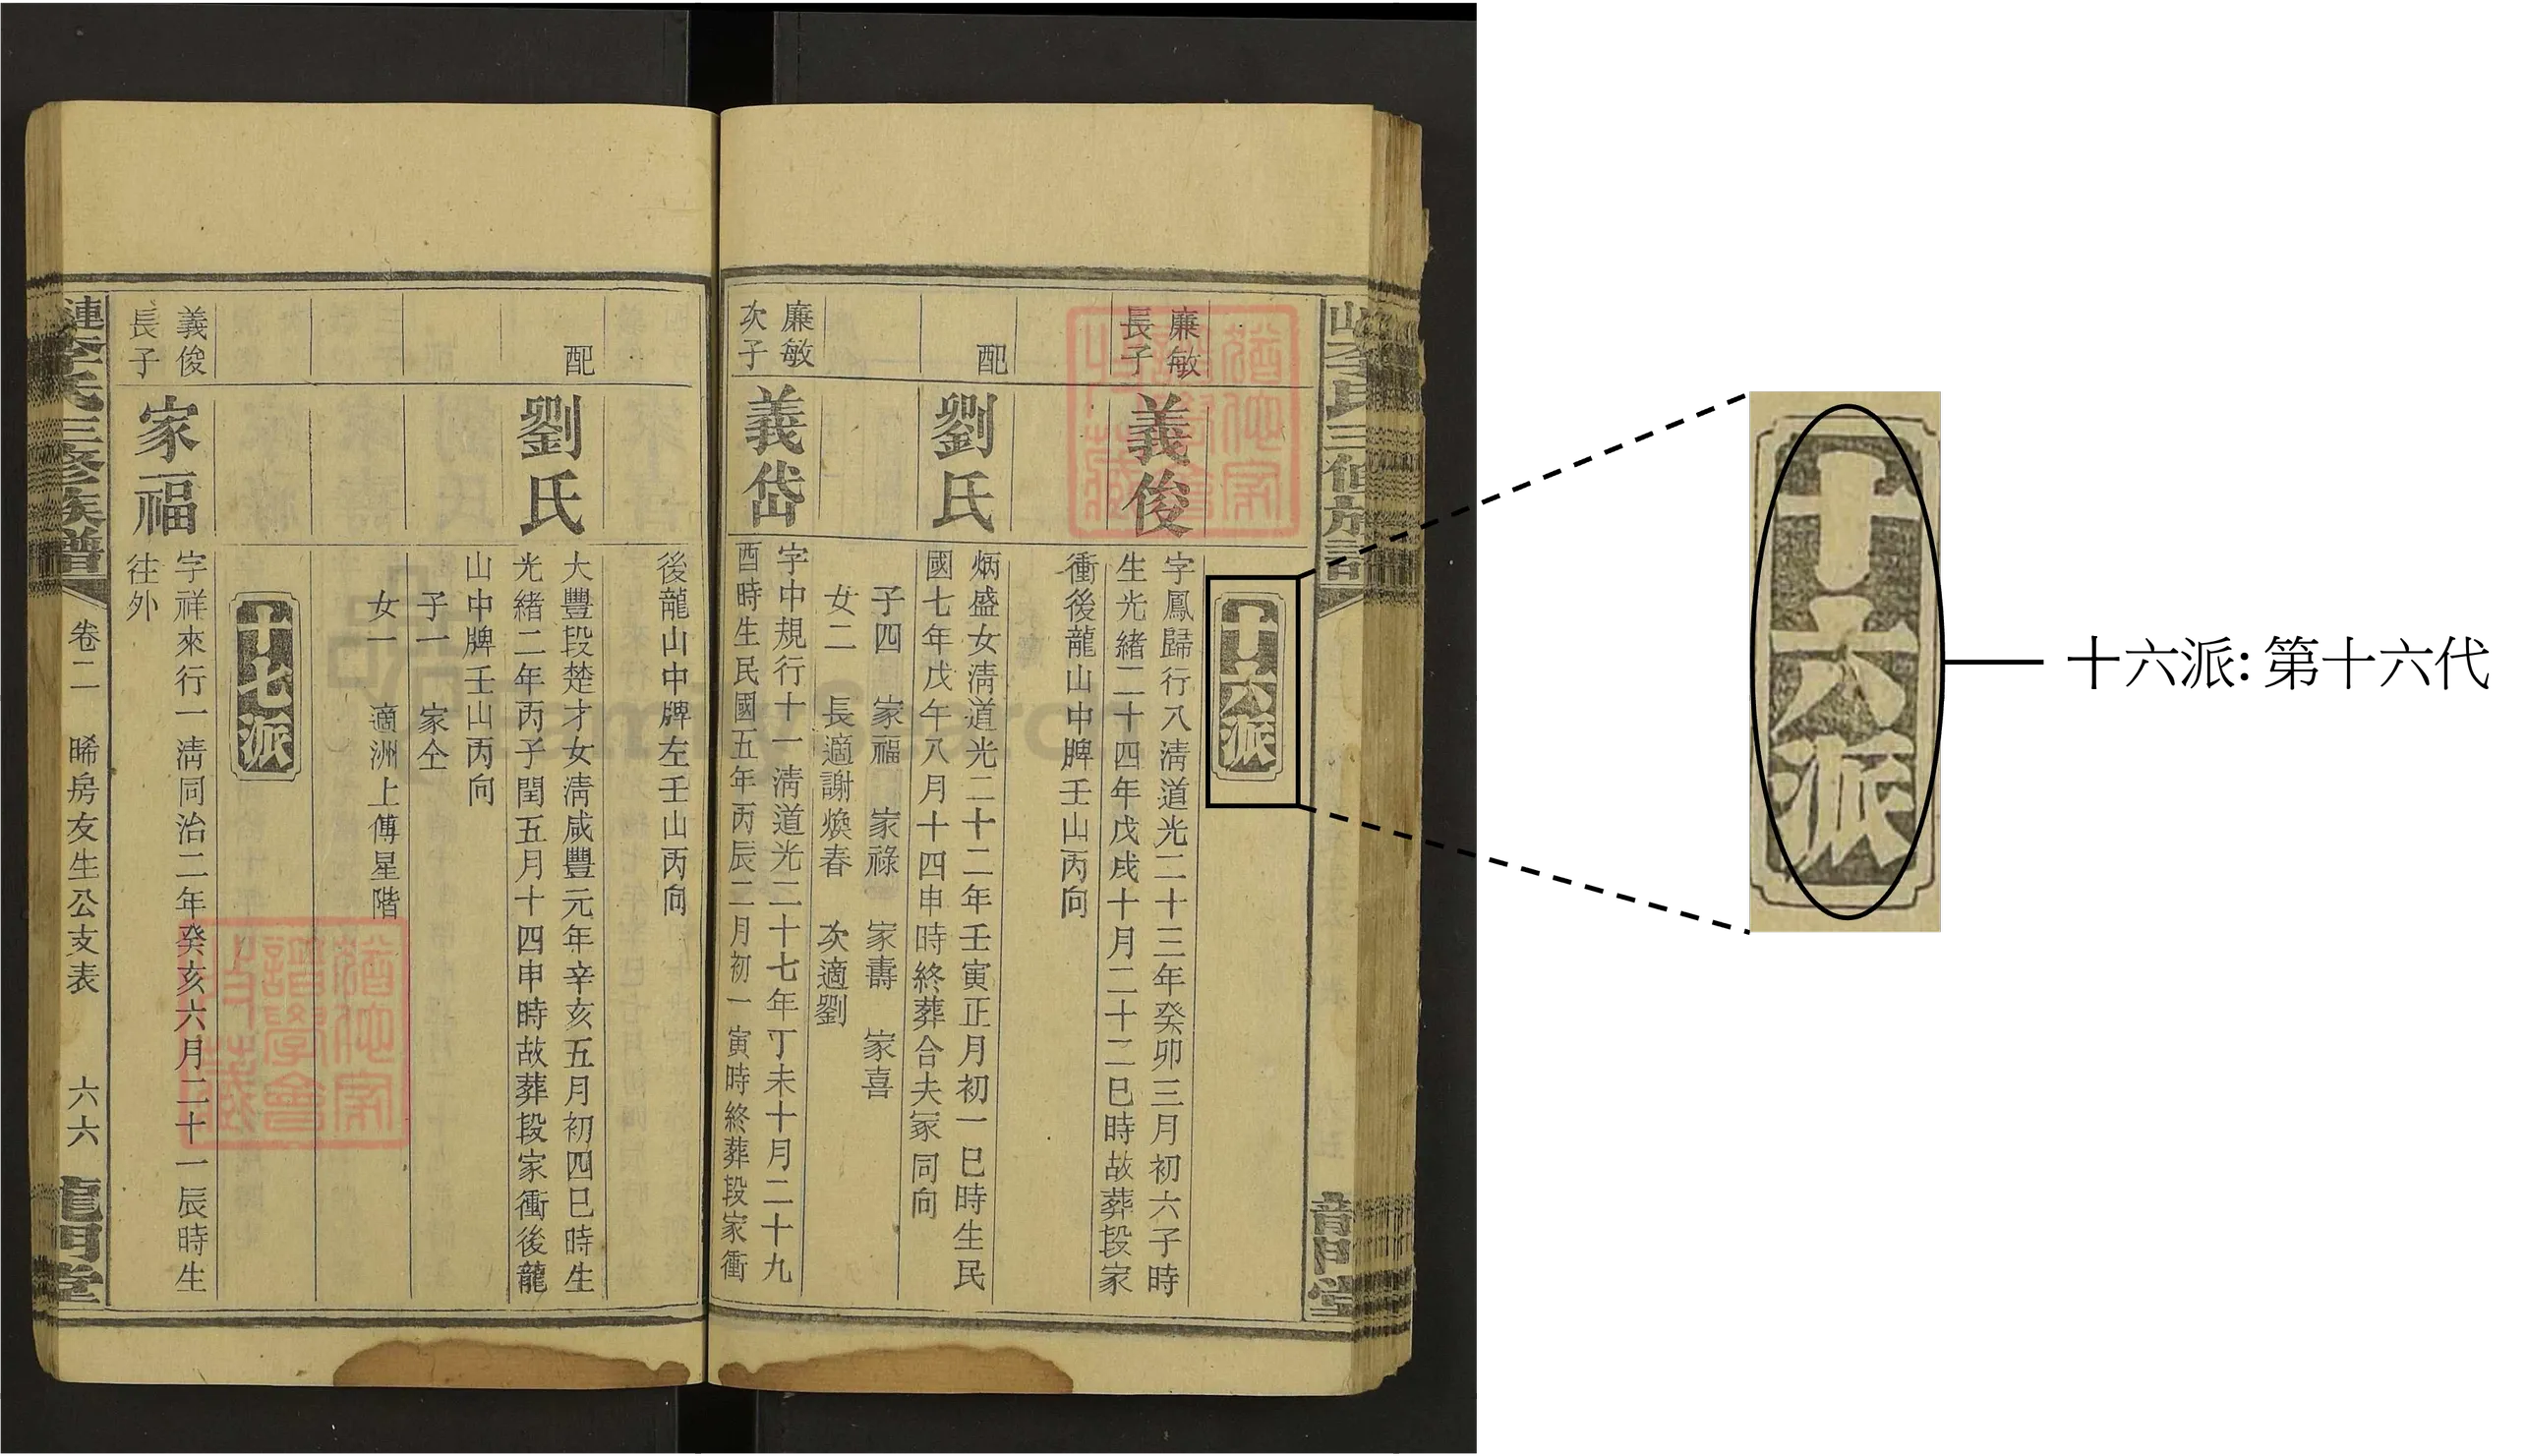 十六派
廉敏
長子
義俊
字鳳歸行八淸道光二十三年癸卯三月初六子時
生光緒二十四年戊戌十月二十二巳時故葬段家
衝後龍山中脾壬山丙向
配
劉氏
炳盛女淸道光二十二年壬寅正月初一巳時生民
國七年戊午八月十四申時終葬合夫冢同向
子四 家福 家祿 家壽 家喜
女二 長適謝煥春 次適劉
廉敏
次子
義岱
字中規行十一淸道光二十七年丁未十月二十九
酉時生民國五年丙辰二月初一寅時終葬段家衝
後龍山中牌左壬山丙向
配
劉氏
大豐段楚才女淸咸豐元年辛亥五月初四巳時生
光緒二年丙子閏五月十四申時故葬段家衝後龍
山中牌壬山丙向
子一 家仝
女一 適洲上傅星階
十七派
義俊
長子
家福
字祥來行一淸同治二年癸亥六月二十一辰時生
往外
漣李氏三修族譜
卷二 晞房友生公支表 六六
龍門堂
FamilySearch
十六派
十六派: 第十六代